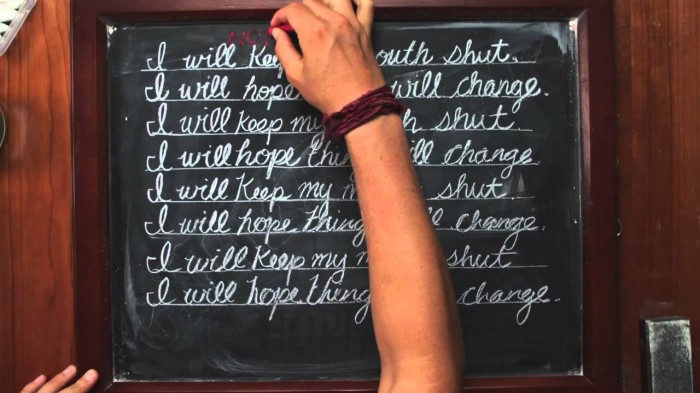 NOT
I will Keep mouth shut.
I will hope will change.
I will Keep my mouth shut.
I will hope things will change.
I will Keep my shut.
I will hope things will change.
I will Keep my shut
I will hope things change.